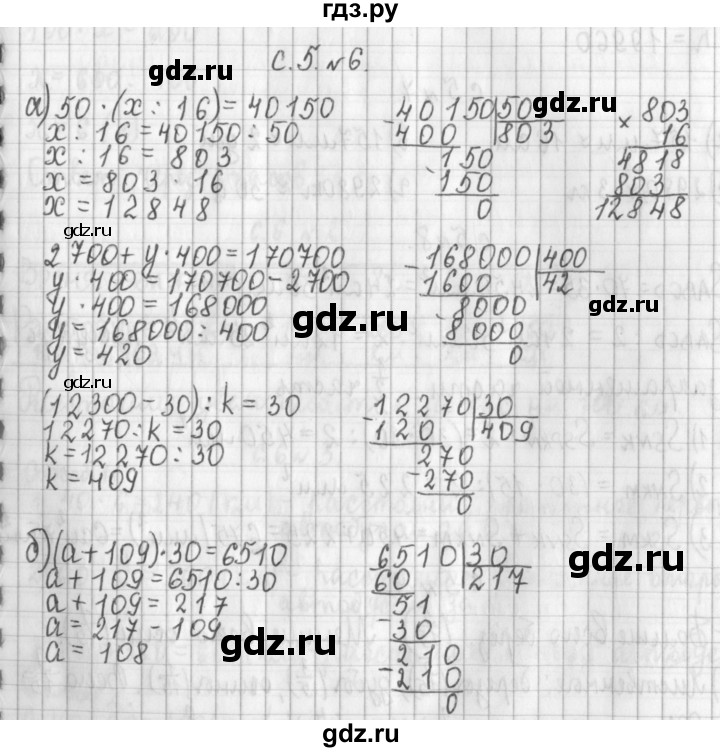 гдз.ру
с. 5. №6.
а) 50 · (x : 16) = 40150
x : 16 = 40150 : 50
x : 16 = 803
x = 803 · 16
x = 12848
- 40150 | 50
400 | 803
- 150
150
0
× 803
16
4818
803
12848
2700 + y · 400 = 170700
y · 400 = 170700 - 2700
y · 400 = 168000
y = 168000 : 400
y = 420
- 168000 | 400
1600 | 42
- 8000
8000
0
(12300 - 30) : k = 30
12270 : k = 30
k = 12270 : 30
k = 409
- 12270 | 30
120 | 409
270
- 270
0
б) (a + 109) · 30 = 6510
a + 109 = 6510 : 30
a + 109 = 217
a = 217 - 109
a = 108
- 6510 | 30
60 | 217
- 51
30
- 210
210
0
gdz.ru
gdz.ru
gdz.ru
gdz.ru
gdz.ru
gdz.ru
gdz.ru
gdz.ru
gdz.ru